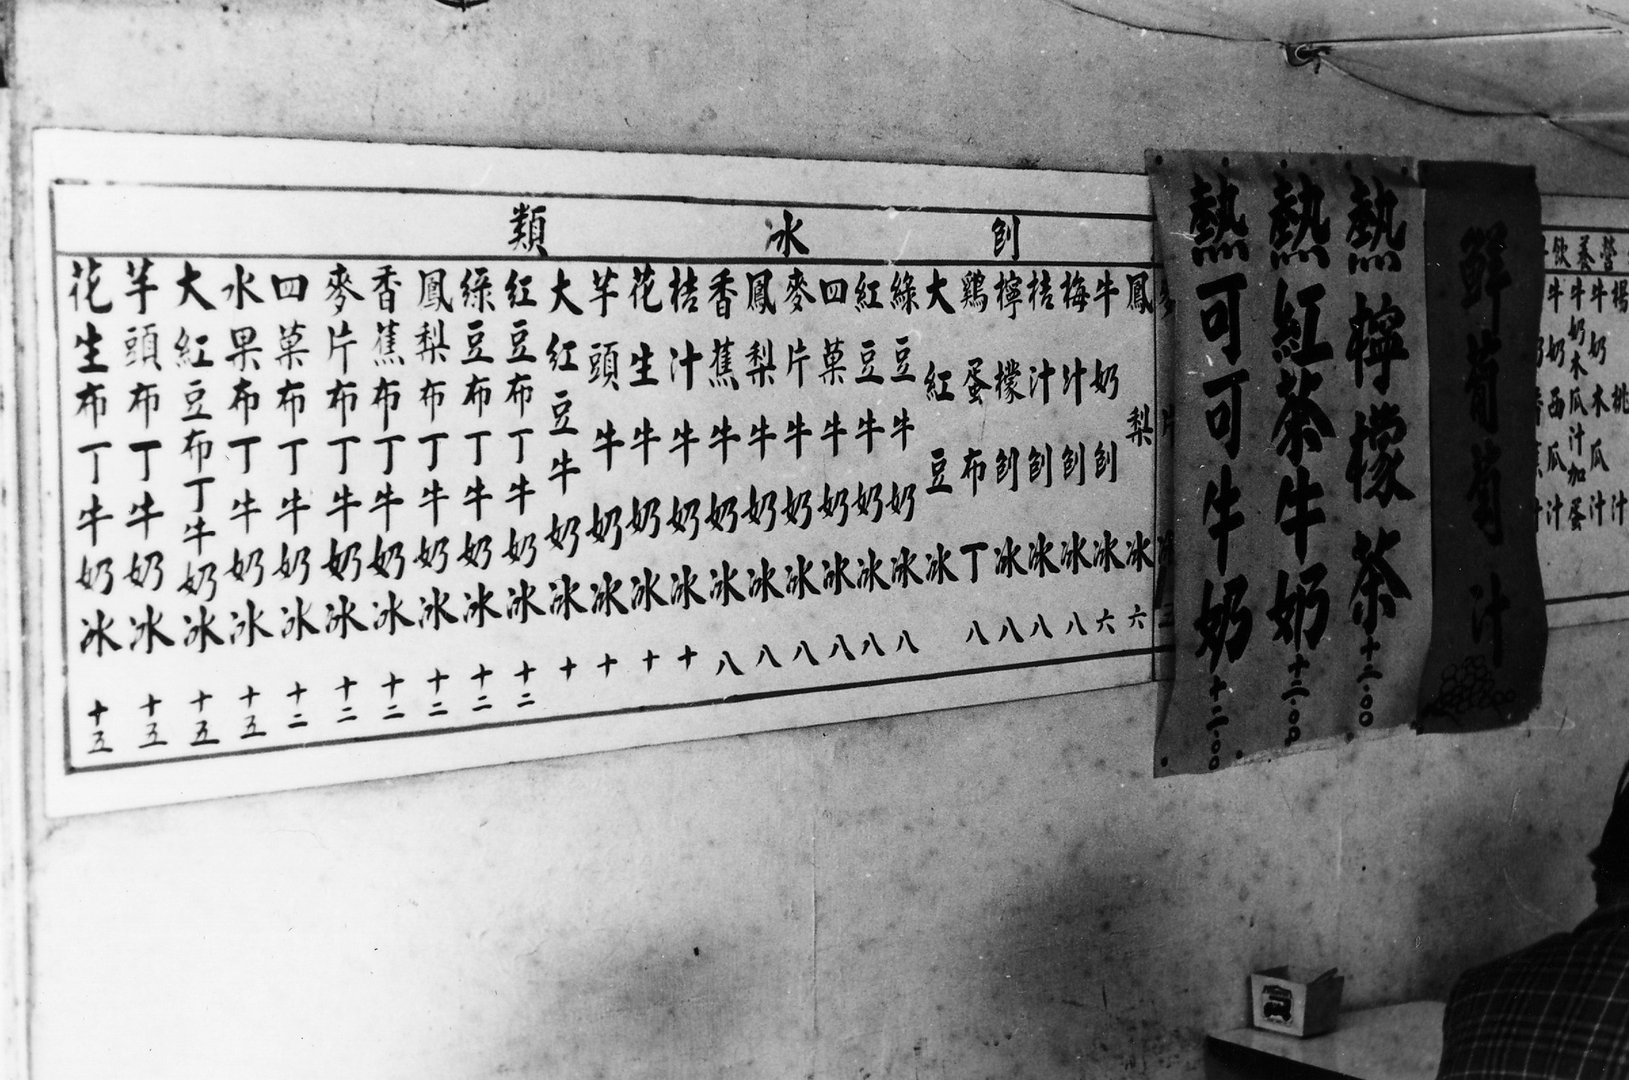 營養飲
楊桃汁
牛奶木瓜汁
牛奶木瓜汁加蛋
牛奶西瓜汁
鮮葡萄汁
熱檸檬茶十二.00
熱紅茶牛奶十二.00
熱可可牛奶十二.00
刨冰類
鳳梨冰 六
牛奶刨冰 六
梅汁刨冰 八
桔汁刨冰 八
檸檬刨冰 八
鷄蛋布丁 八
大紅豆冰
綠豆牛奶冰 八
紅豆牛奶冰 八
四菓牛奶冰 八
麥片牛奶冰 八
鳳梨牛奶冰 八
香蕉牛奶冰 八
桔汁牛奶冰 十
花生牛奶冰 十
芋頭牛奶冰 十
大紅豆牛奶冰 十
紅豆布丁牛奶冰 十二
綠豆布丁牛奶冰 十二
鳳梨布丁牛奶冰 十二
香蕉布丁牛奶冰 十二
麥片布丁牛奶冰 十二
四菓布丁牛奶冰 十二
水果布丁牛奶冰 十五
大紅豆布丁牛奶冰 十五
芋頭布丁牛奶冰 十五
花生布丁牛奶冰 十五